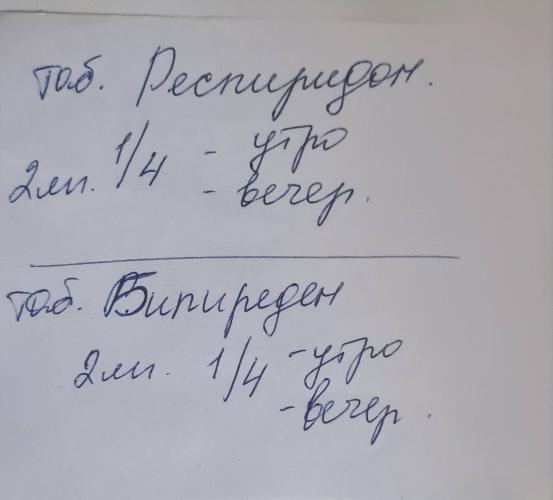 таб. Респиридон.
2мг. 1/4 - утро
- вечер.
таб. Бипиреден
2мг. 1/4 - утро
- вечер.